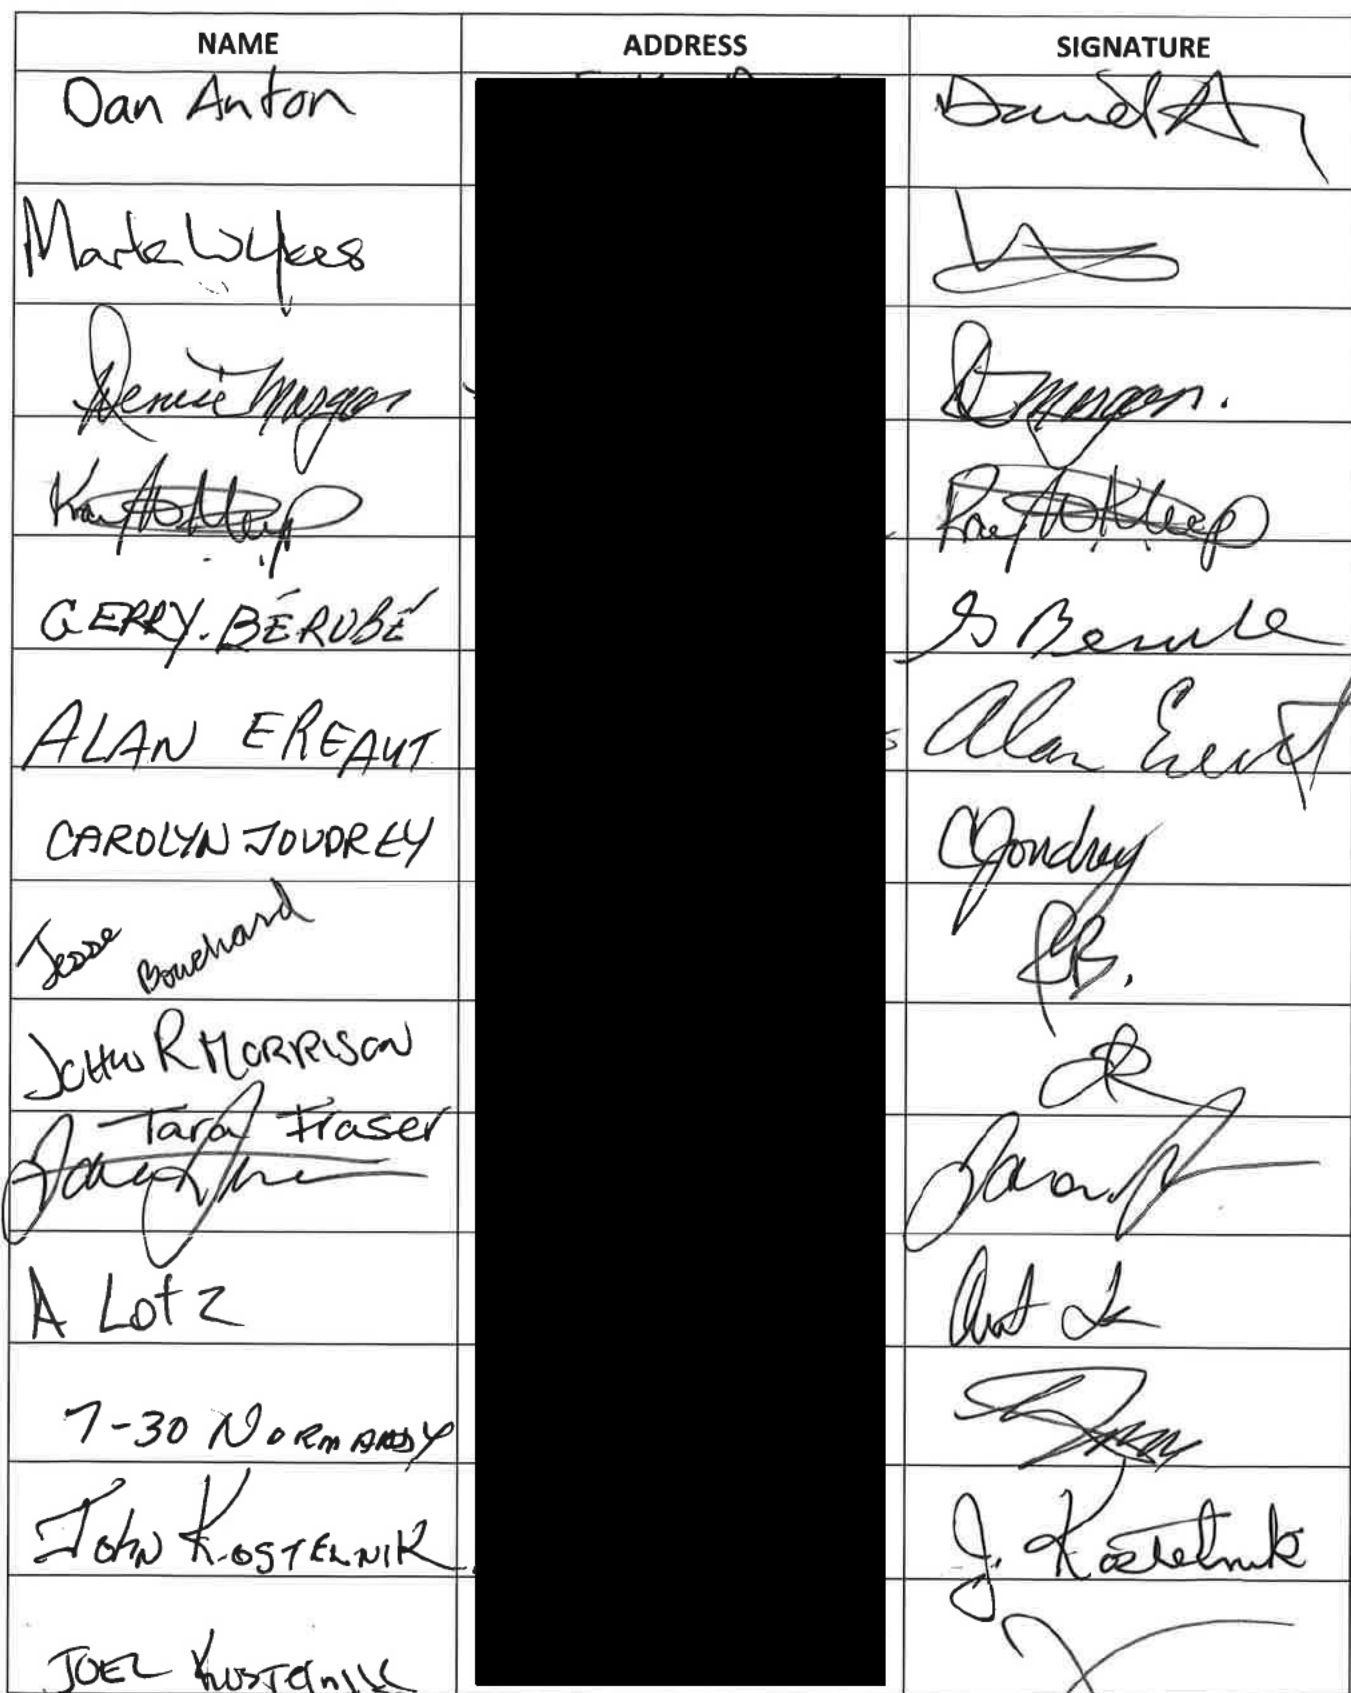 NAME ADDRESS SIGNATURE
Dan Anton David A
Mark Wykes
Denise Morgan D Morgan.
GERRY. BÉRUBÉ G Berube
ALAN EREAUT Alan Ereaut
CAROLYN JOUDREY CJoudrey
Jesse Bouchard JB.
JOHN R MORRISON
Tara Fraser
Tara
A Lotz Art L
7-30 NORMANDY
JOHN KOSTELNIK J. Kostelnik
JOEL KOSTELNIK